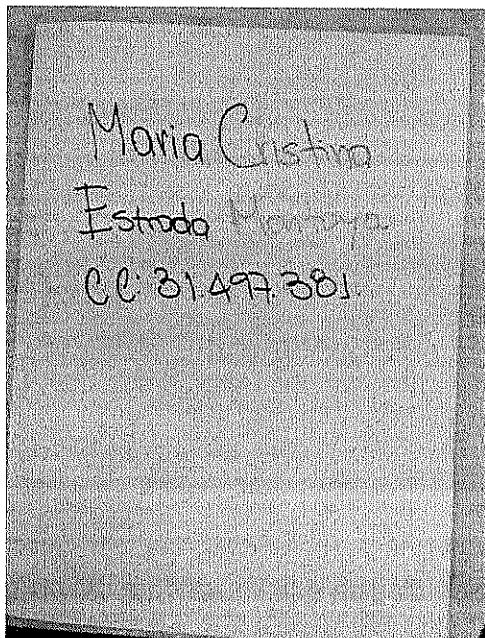 Maria Cristina
Estrada
CC: 31.497.381